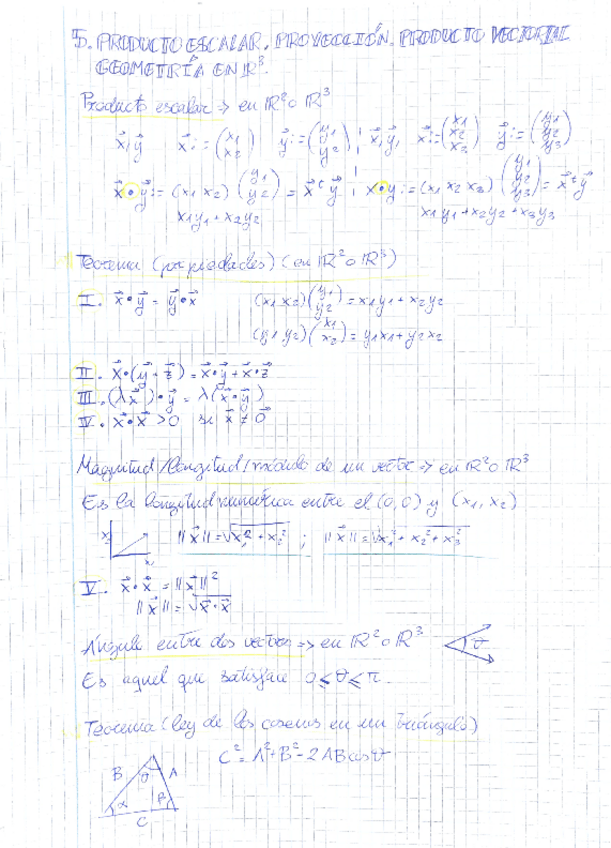 5. PRODUCTO ESCALAR, PROYECCIÓN, PRODUCTO VECTORIAL
GEOMETRÍA EN ℝ³.
Producto escalar => en ℝ² o ℝ³
x⃗, y⃗   x⃗ := (x1 x2)   y⃗ := (y1 y2) ¦ x⃗, y⃗,   x⃗ := (x1 x2 x3)   y⃗ := (y1 y2 y3)
x⃗ • y⃗ := (x1 x2) (y1 y2) = x⃗ᵗ y⃗ ¦ x • y := (x1 x2 x3) (y1 y2 y3) = x⃗ᵗ y⃗
x1y1 + x2y2   x1y1 + x2y2 + x3y3
Teorema (propiedades) (en ℝ² o ℝ³)
I. x⃗ • y⃗ = y⃗ • x⃗   (x1 x2)(y1 y2) = x1y1 + x2y2
(y1 y2)(x1 x2) = y1x1 + y2x2
II. x⃗ • (y⃗ + z⃗) = x⃗ • y⃗ + x⃗ • z⃗
III. (λx⃗) • y⃗ = λ(x⃗ • y⃗)
IV. x⃗ • x⃗ > 0 si x⃗ ≠ 0⃗
Magnitud/longitud/módulo de un vector => en ℝ² o ℝ³
Es la longitud numérica entre el (0,0) y (x1, x2)
x2   ||x⃗|| = √x1² + x2² ; ||x⃗|| = √x1² + x2² + x3²
x1
V. x⃗ • x⃗ = ||x⃗||²
||x⃗|| = √x⃗ • x⃗
Ángulo entre dos vectores => en ℝ² o ℝ³   θ
Es aquel que satisface 0 ≤ θ ≤ π
Teorema (ley de los cosenos en un triángulo)
C² = A² + B² - 2ABcosθ
B θ A
α β
C